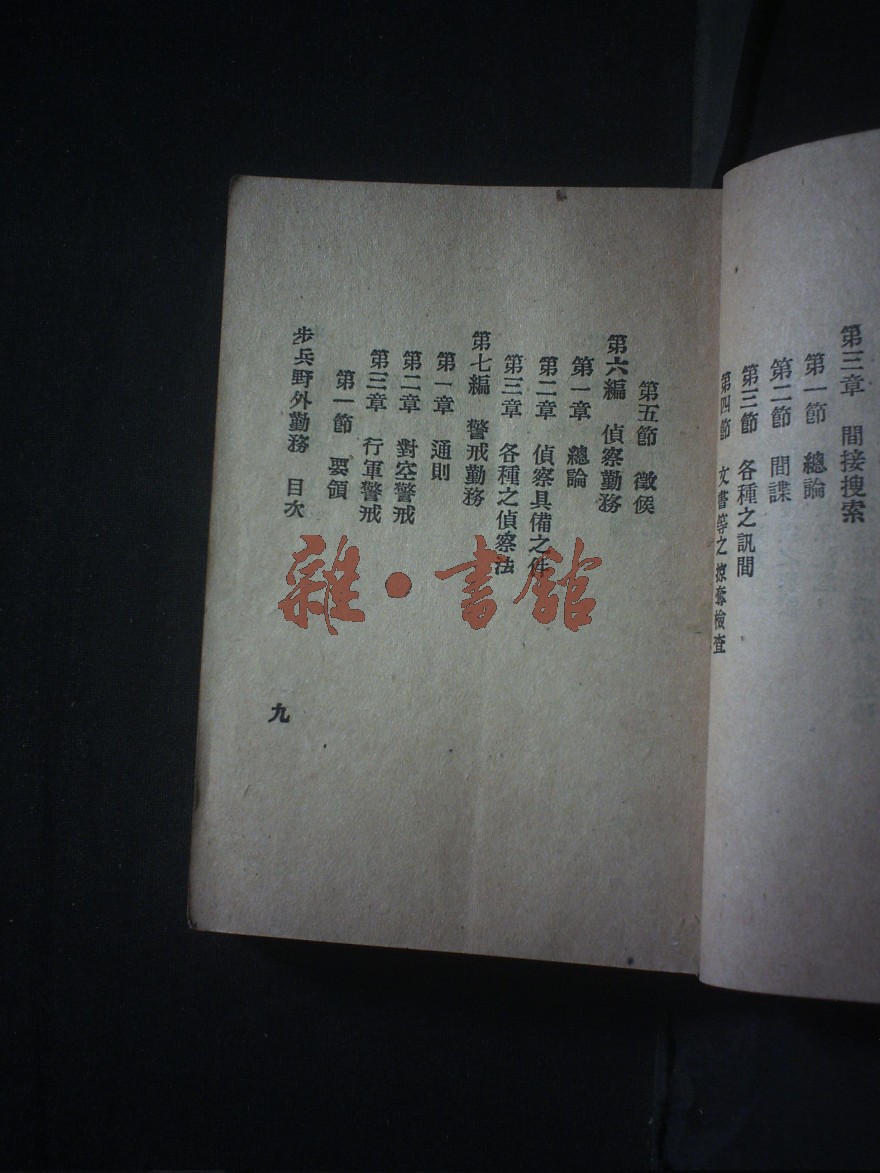 第三章　間接搜索
第一節　總論
第二節　間諜
第三節　各種之訊間
第四節　文書等之掠奪檢查
第五節　徵候
第六編　偵察勤務
第一章　總論
第二章　偵察具備之件
第三章　各種之偵察法
第七編　警戒勤務
第一章　通則
第二章　對空警戒
第三章　行軍警戒
第一節　要領
步兵野外勤務　目次
九
雜·書館